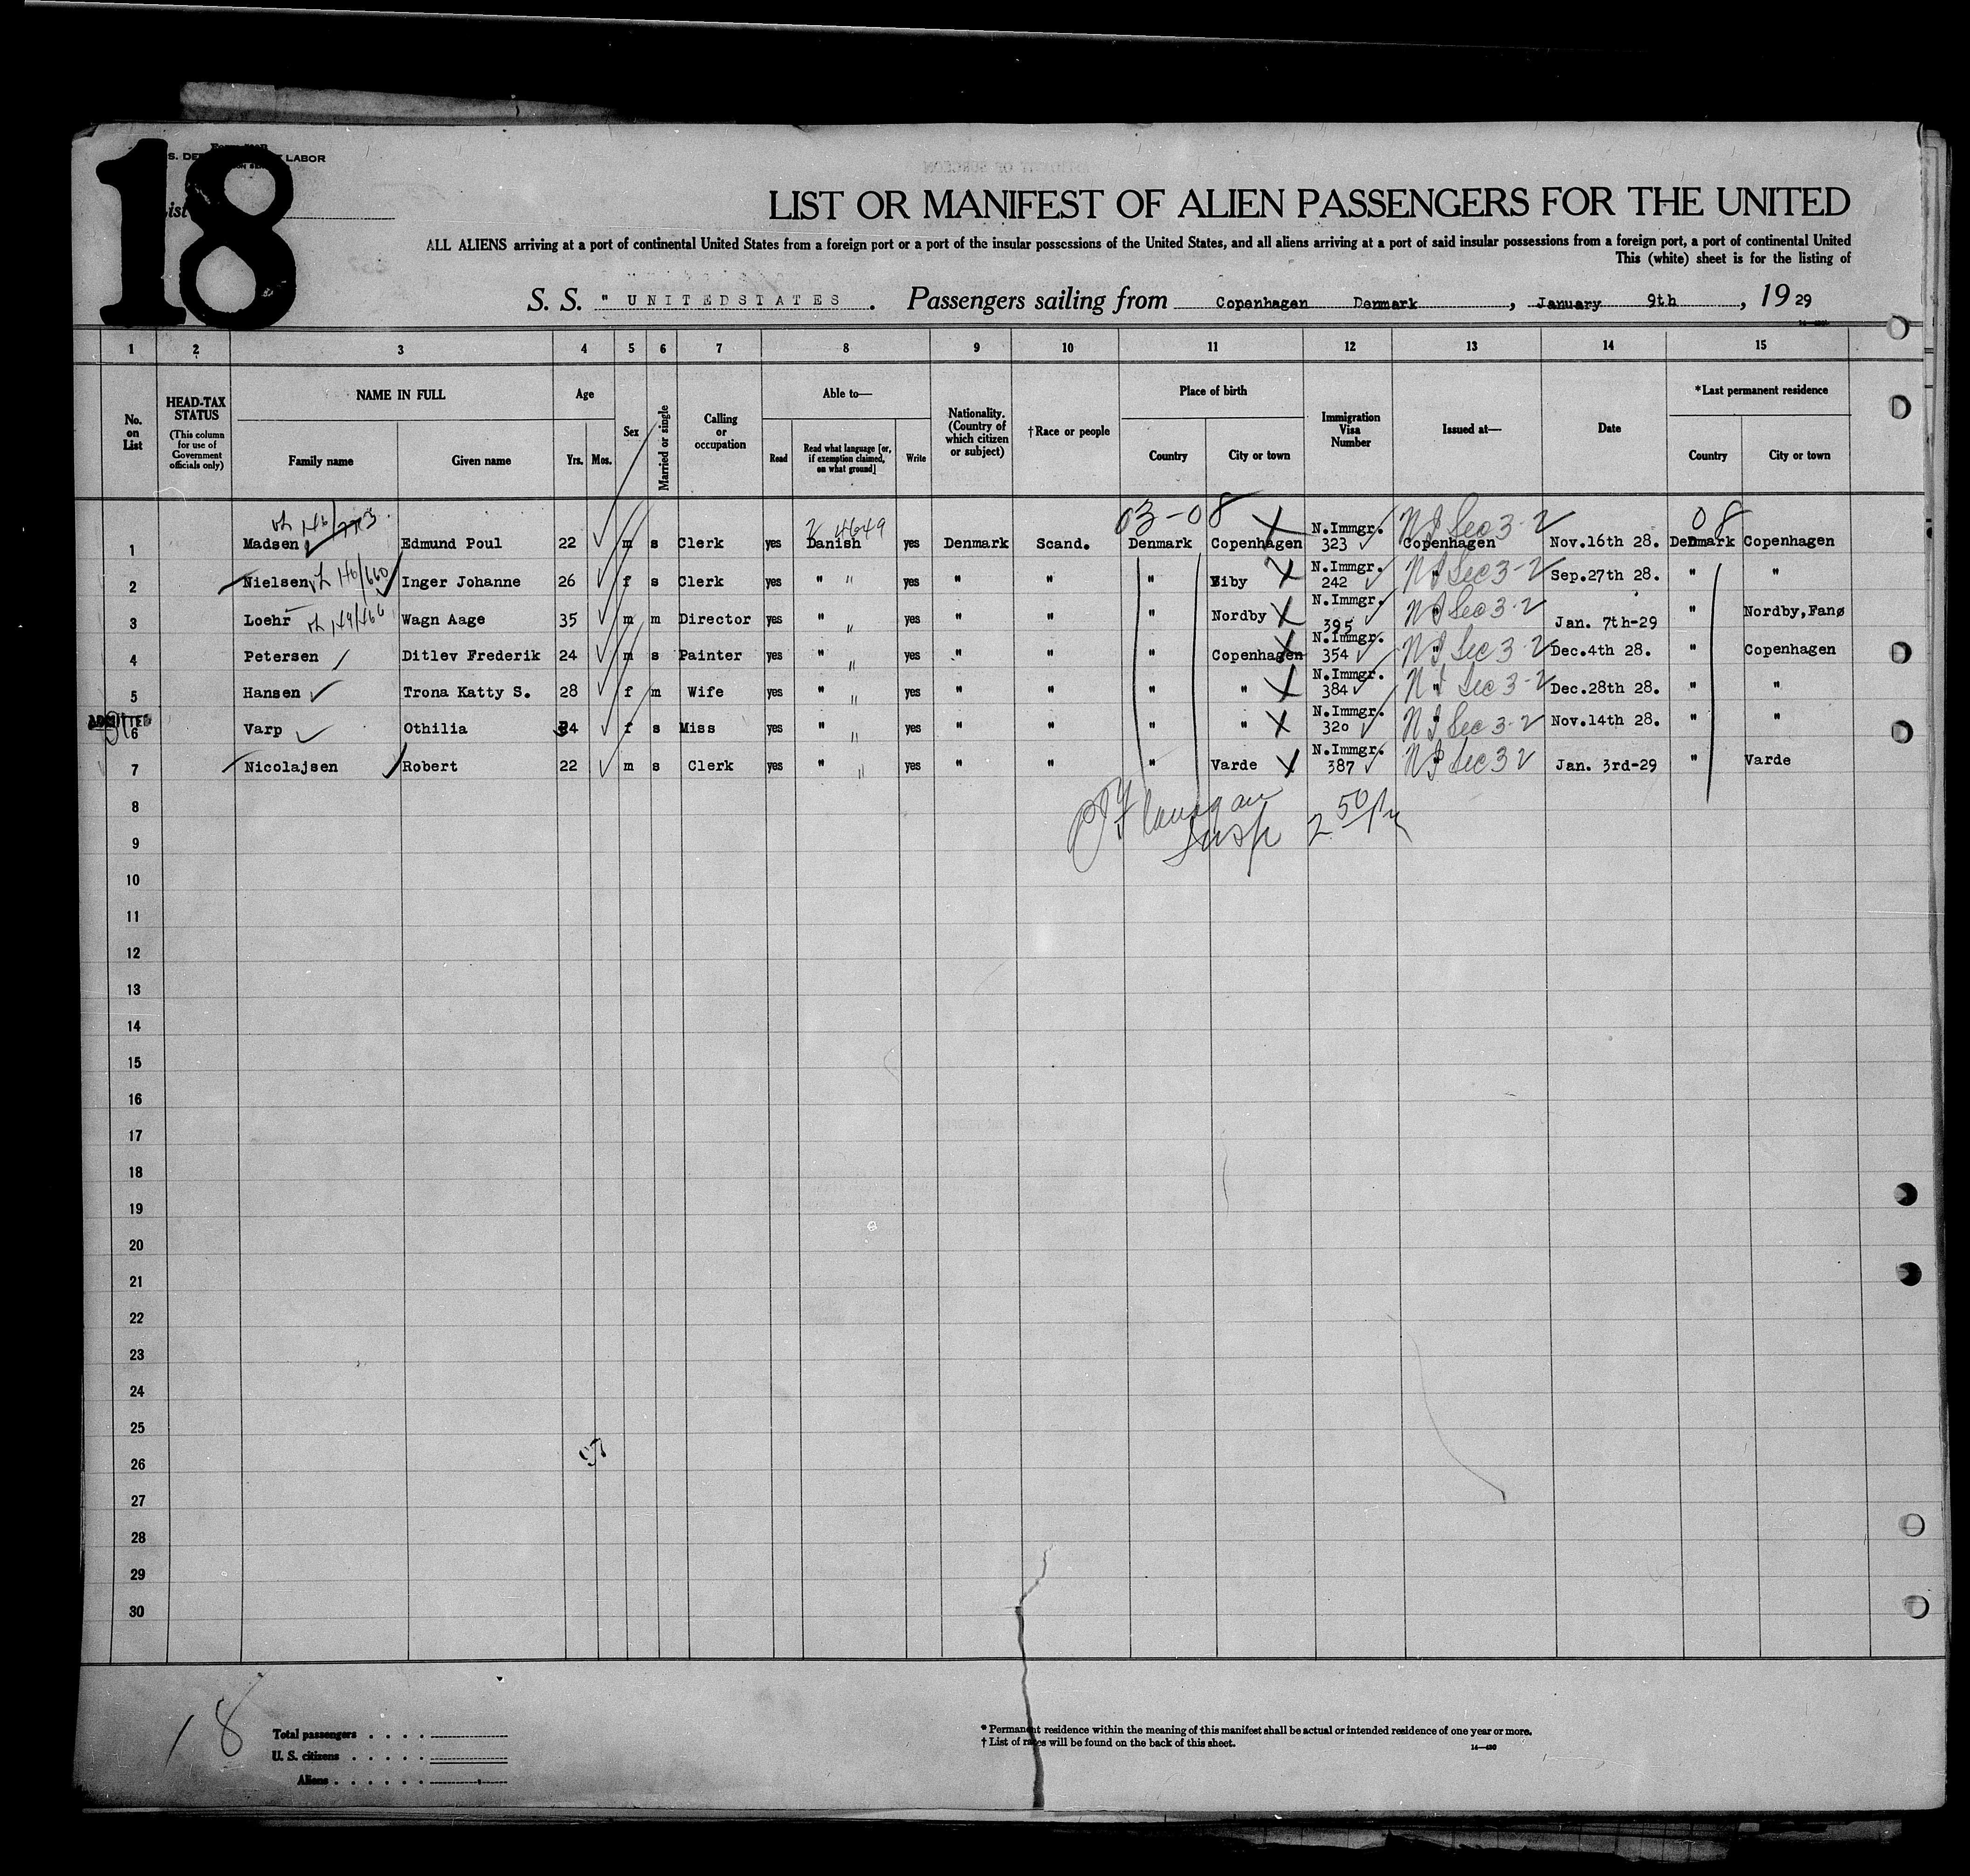 18
LABOR
List
LIST OR MANIFEST OF ALIEN PASSENGERS FOR THE UNITED
ALL ALIENS arriving at a port of continental United States from a foreign port or a port of the insular possessions of the United States, and all aliens arriving at a port of said insular possessions from a foreign port, a port of continental United
This (white) sheet is for the listing of
S. S. " UNITEDSTATES . Passengers sailing from Copenhagen Denmark , January 9th , 19 29
1 2 3 4 5 6 7 8 9 10 11 12 13 14 15
No. on List
HEAD-TAX STATUS (This column for use of Government officials only)
NAME IN FULL
Family name Given name
Age
Yrs. Mos.
Sex
Married or single
Calling or occupation
Able to—
Read Read what language [or, if exemption claimed, on what ground] Write
Nationality. (Country of which citizen or subject)
†Race or people
Place of birth
Country City or town
Immigration Visa Number
Issued at—
Date
*Last permanent residence
Country City or town
03-08 08
2 4649
1 Madsen Edmund Poul 22 m s Clerk yes Danish yes Denmark Scand. Denmark Copenhagen N.Immgr. 323 Copenhagen Nov.16th 28. Denmark Copenhagen
2 Nielsen 140/660 Inger Johanne 26 f s Clerk yes " " yes " " " Viby N.Immgr. 242 " Sep.27th 28. " "
3 Loehr 149/466 Wagn Aage 35 m m Director yes " " yes " " " Nordby N.Immgr. 395 " Jan. 7th-29 " Nordby,Fanø
4 Petersen Ditlev Frederik 24 m s Painter yes " " yes " " " Copenhagen N.Immgr. 354 " Dec.4th 28. " Copenhagen
5 Hansen Trona Katty S. 28 f m Wife yes " " yes " " " " N.Immgr. 384 " Dec.28th 28. " "
ADMITTED
6 Varp Othilia 24 f s Miss yes " " yes " " " " N.Immgr. 320 " Nov.14th 28. " "
7 Nicolajsen Robert 22 m s Clerk yes " " yes " " " Varde N.Immgr. 387 " Jan. 3rd-29 " Varde
8
Insp 2 50
9
10
11
12
13
14
15
16
17
18
19
20
21
22
23
24
25
26
27
28
29
30
18
Total passengers . . . .
U. S. citizens . . . . .
Aliens . . . . . .
* Permanent residence within the meaning of this manifest shall be actual or intended residence of one year or more.
† List of races will be found on the back of this sheet.